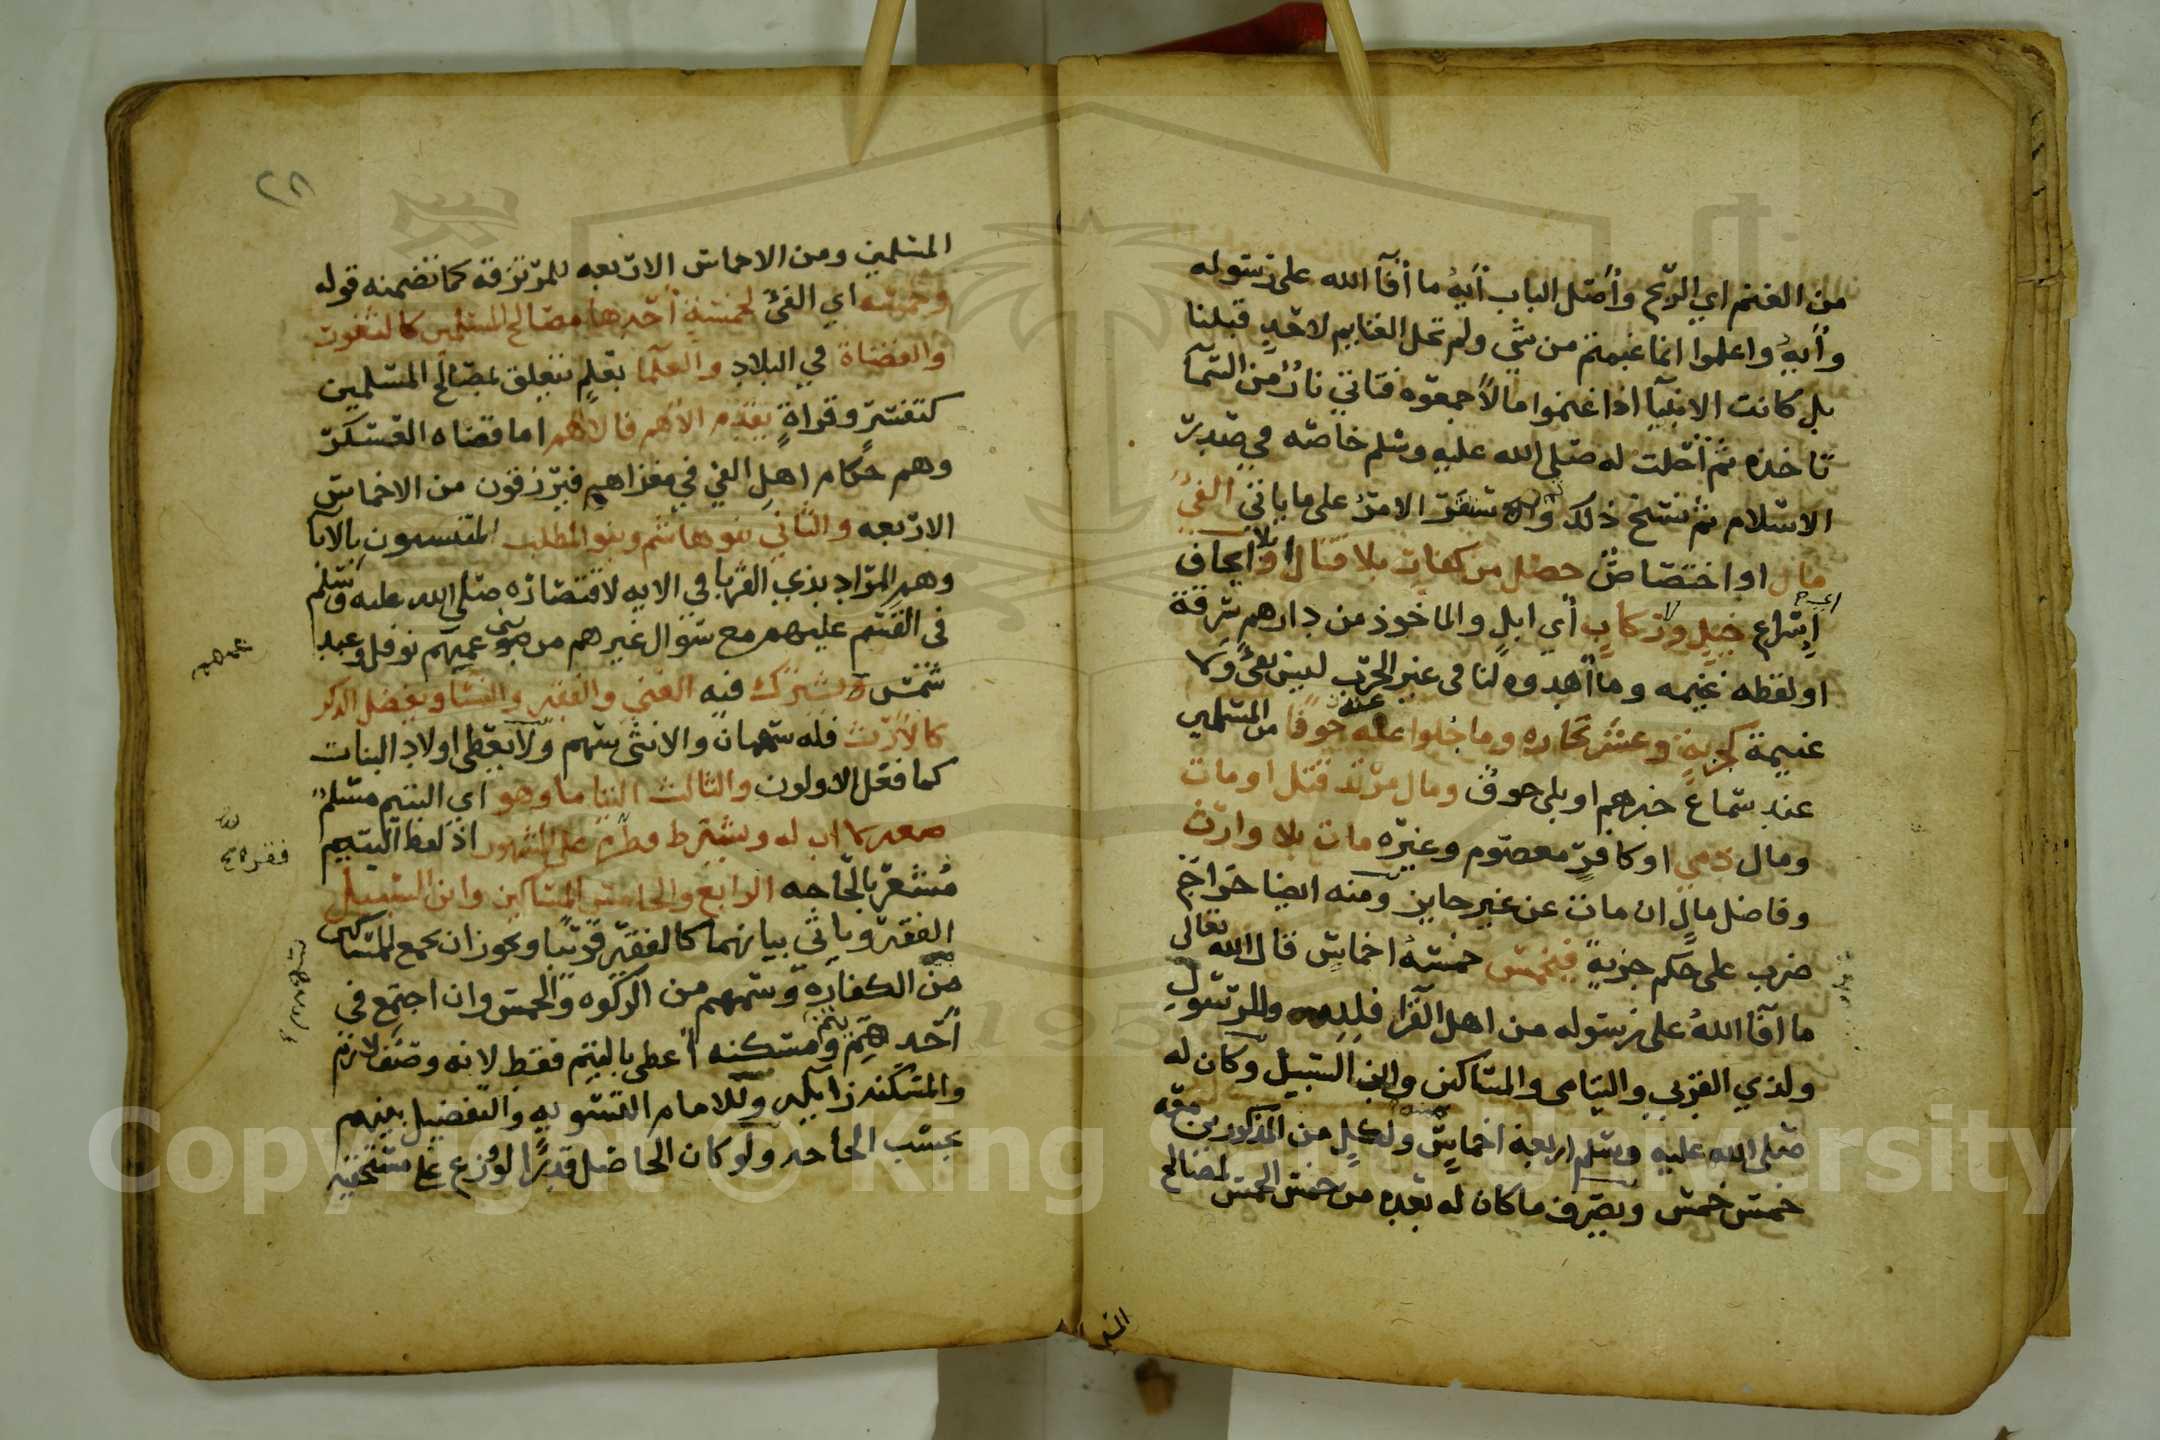 من الغنم اي الربح وأصل الباب أيةُ ما أفآ الله على رسوله
وأيةُ واعلموا انما غنمتم من شي ولم تحل الغنايم لاحدٍ قبلنا
بل كانت الانبيآ اذا غنموا مالاً جمعوه فتاتي نارٌ من السمآ
تاخذه ثم أحلت له صلى الله عليه وسلم خاصه في صدر
الاسلام ثم نسخ ذلك واستقر الامرُ على ما ياتي الفيُ
مال او اختصاص حصل من كفارٍ بلا قتال او بلا ايجاف
اي اسراع خيلٍ ولا ركابٍ أي ابلٍ والماخوذ من دارهم سرقة
او لقطه غنيمه وما أهدوه لنا في غير الحرب ليس بفئ ولا
غنيمة كجزيةٍ وعشر تجاره وما جلوا عنه خوفا من المسلمين
عند سماع خبرهم او بلى خوف ومال مرتد قتل او مات
ومال ذمي او كافرٍ معصوم وغيره مات بلا وارث
وفاضل مالٍ ان مات عن غير حايز ومنه ايضا خراج
ضرب على حكم جزيةٍ فيخمس خمسةُ اخماسٍ قال الله تعالى
ما آفا اللهُ على رسوله من اهل القرا فلله وللرسول
ولذي القربي واليتامى والمساكين وابن السبيل وكان له
صلى الله عليه وسلم اربعة اخماسٍ ولكلٍ من المذكورين معه
خمس خمس ويصرف ما كان له بعده من خمس الخمس لمصالح
٢٨
المسلمين ومن الاخماس الاربعه للمرتزقة كما تضمنه قوله
وخمسه اي الفئ لخمسةٍ أحدها مصالح المسلمين كالثغور
والقضاة في البلاد والعلما بعلمٍ يتعلق بمصالح المسلمين
كتفسيرٍ وقراةٍ يقدم الاهم فالاهم اما قضاه العسكر
وهم حكام اهل الفئ في مغزاهم فيرزقون من الاخماس
الاربعه والثاني بنو هاشم وبنو المطلب المنتسبون بالابا
وهم المراد بذي القربا في الايه لاقتصاره صلى الله عليه وسلم
في القسم عليهم مع سوال غيرهم من بني عميهم نوفل وعبد
شمس ويشترك فيه الغني والفقير والنسا ويفضل الذكر
كالارث فله سهمان والانثى سهم ولا يعطى اولاد البنات
كما فعل الاولون والثالث اليتاما وهو اي اليتيم مسلم
صغير لا اب له ويشترط فقره على المشهور اذ لفظ اليتيم
مُشعر بالحاجه الرابع والخامس المساكين وابن السبيل
الفقير وياتي بيانهما كالفقير قريبا ويجوز ان يجمع للمساكين
من الكفاره وسهمهم من الزكوه والخمس وان اجتمع في
أحدهم يتم ومسكنه أعطى باليتم فقط لانه وصف لازم
والمسكنه زايله وللامام التسويه والتفضيل بينهم
بحسب الحاجه ولو كان الحاصل قدرًا لو وزع على مستحقيه
Copyright © King Saud University